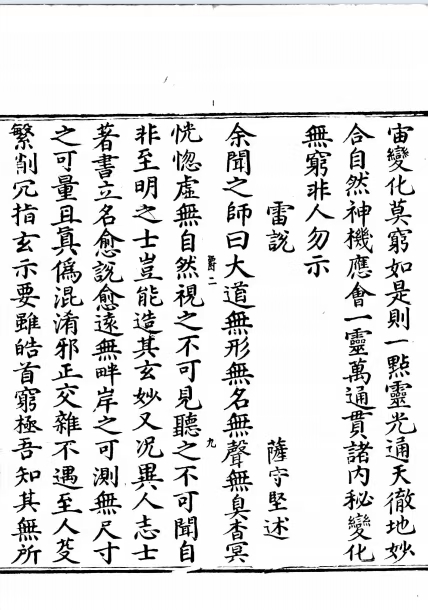 宙變化莫窮如是則一點靈光通天徹地妙
合自然神機應會一靈萬通貫諸內秘變化
無窮非人勿示
雷說
薩守堅述
余聞之師曰大道無形無名無聲無臭杳冥
爵二
九
恍惚虛無自然視之不可見聽之不可聞自
非至明之士豈能造其玄妙又况異人志士
著書立名愈說愈遠無畔岸之可測無尺寸
之可量且真偽混淆邪正交雜不遇至人芟
繁削冗指玄示要雖皓首窮極吾知其無所